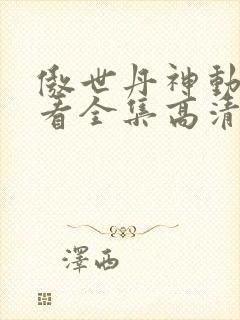 傲世丹神動
看全集高清
澤西